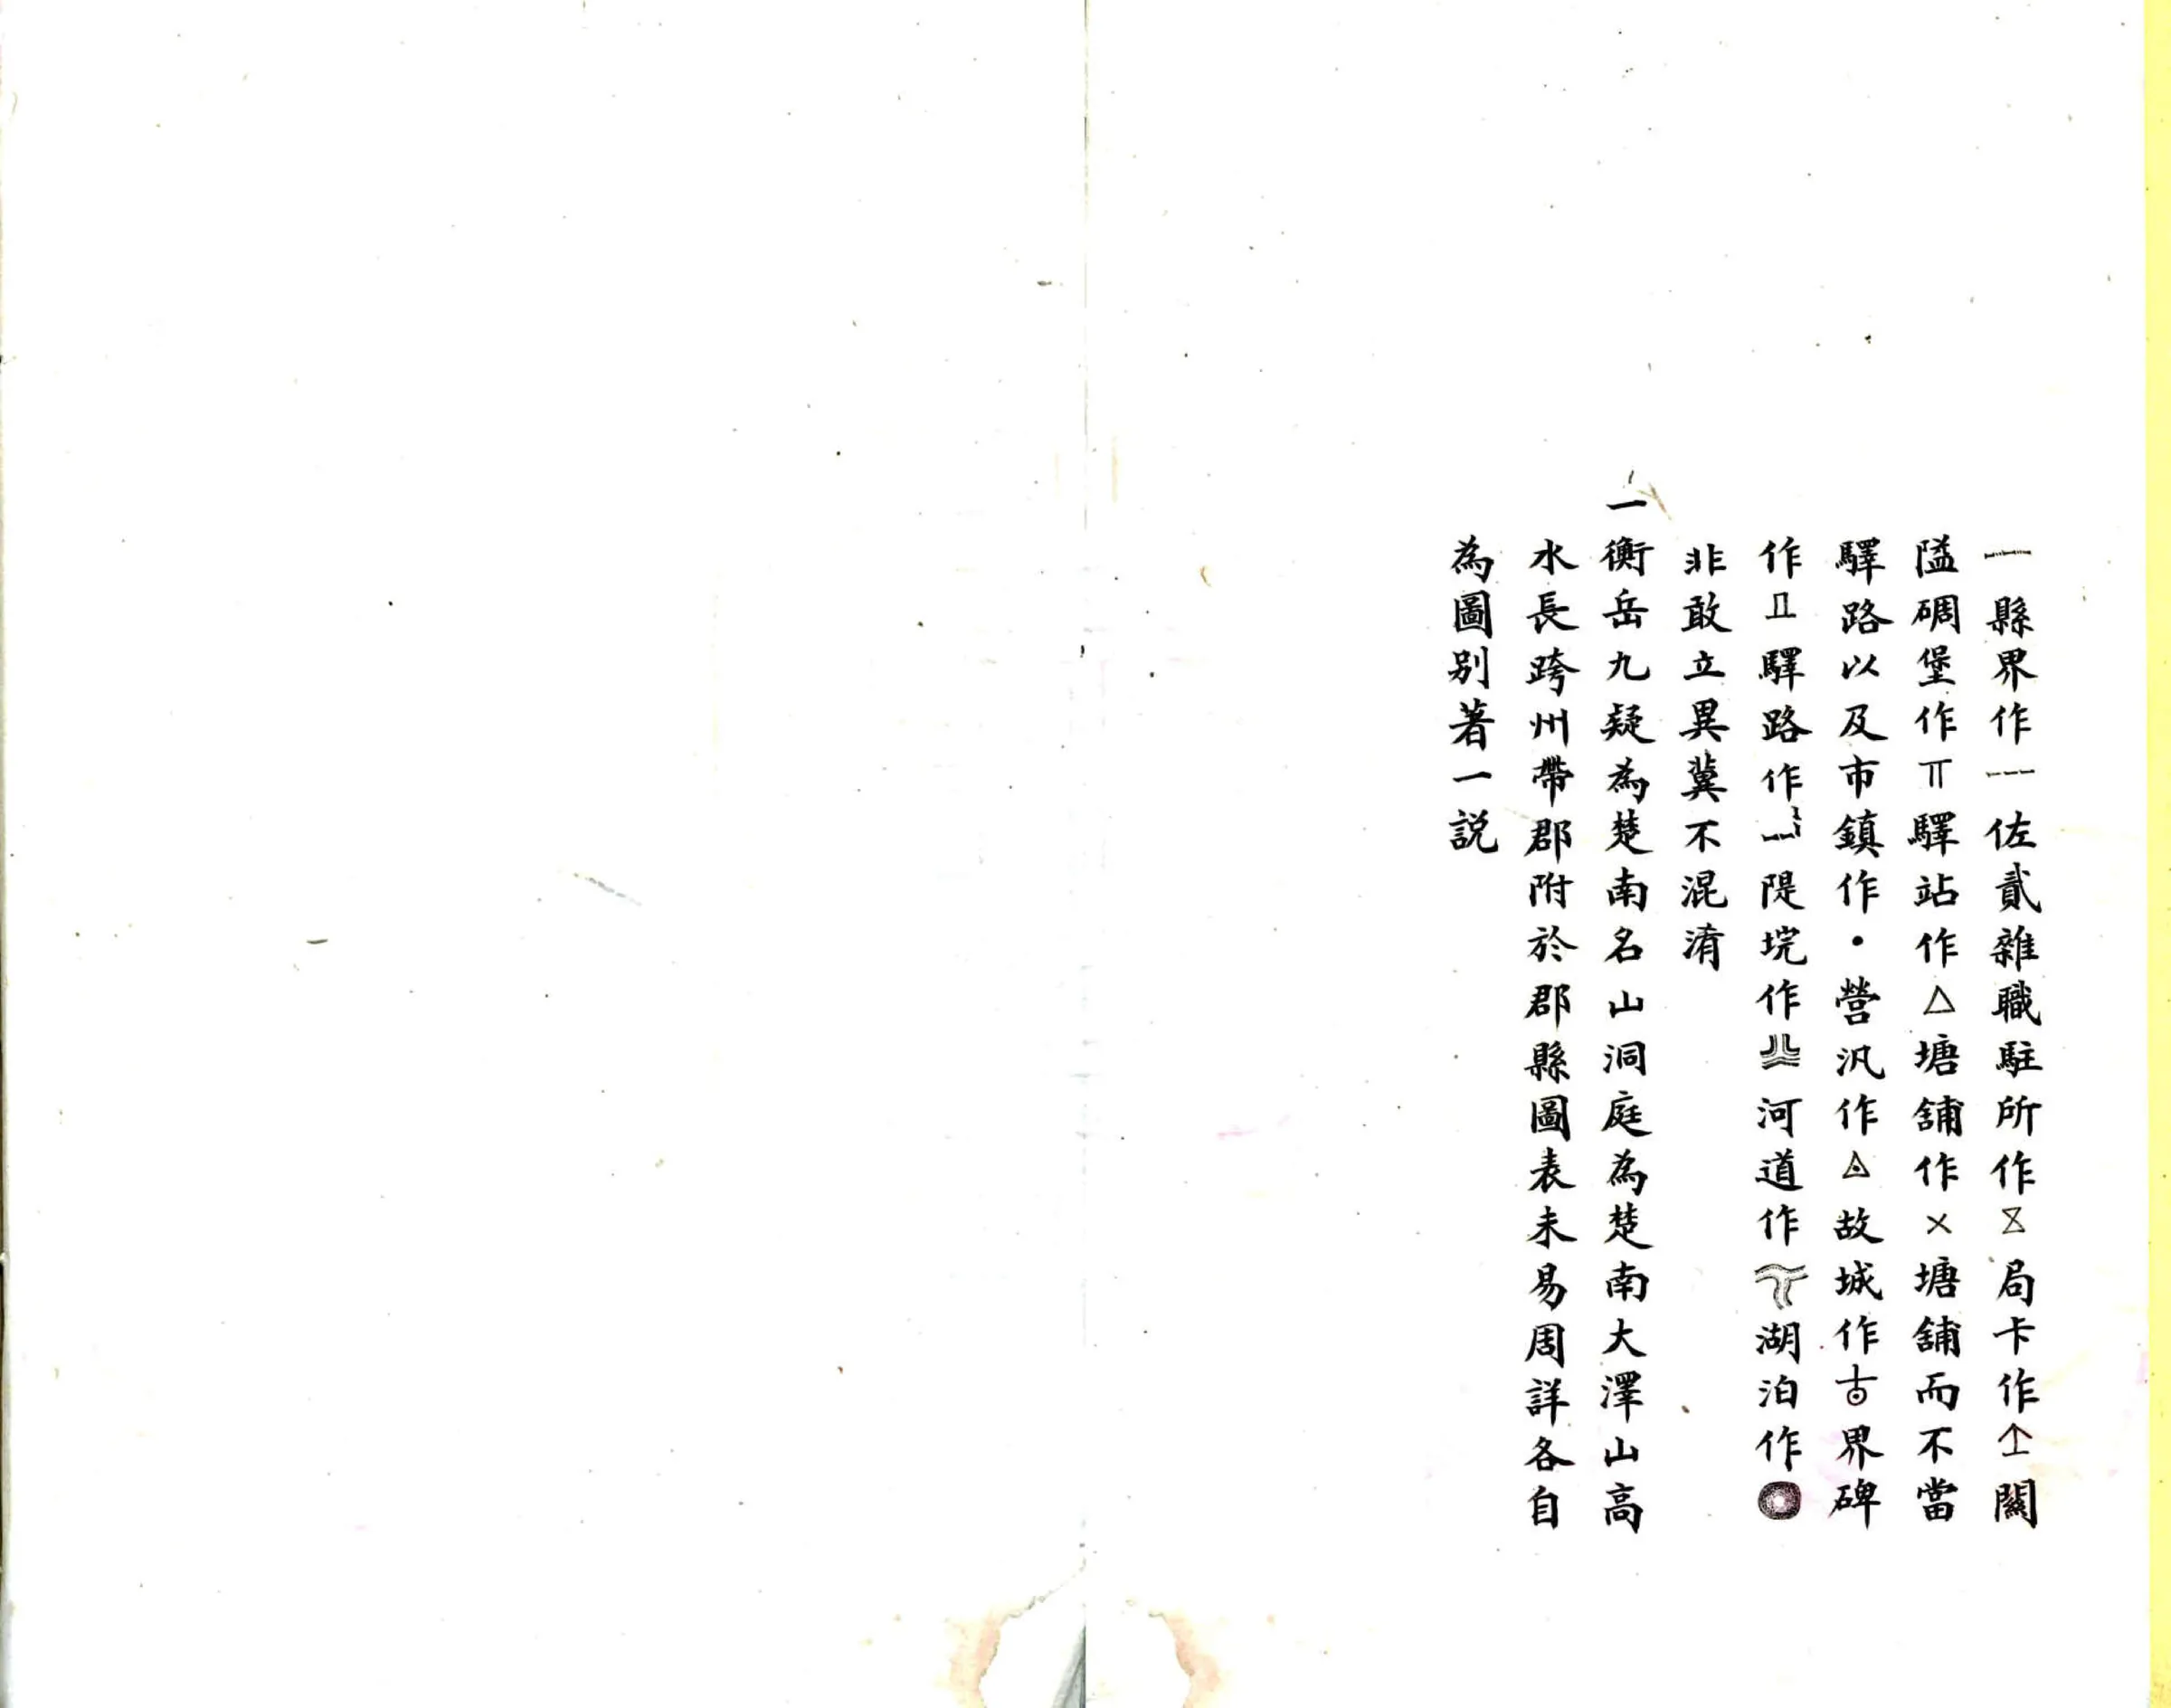 縣界作佐貳雜職駐所作局卡作關
隘碉堡作驛站作△塘舖作×塘舖而不當
驛路以及市鎮作•營汛作◬故城作界碑
作驛路作隄垸作河道作湖泊作
非敢立異冀不混淆
一衡岳九疑為楚南名山洞庭為楚南大澤山高
水長跨州帶郡附於郡縣圖表未易周詳各自
為圖別著一説